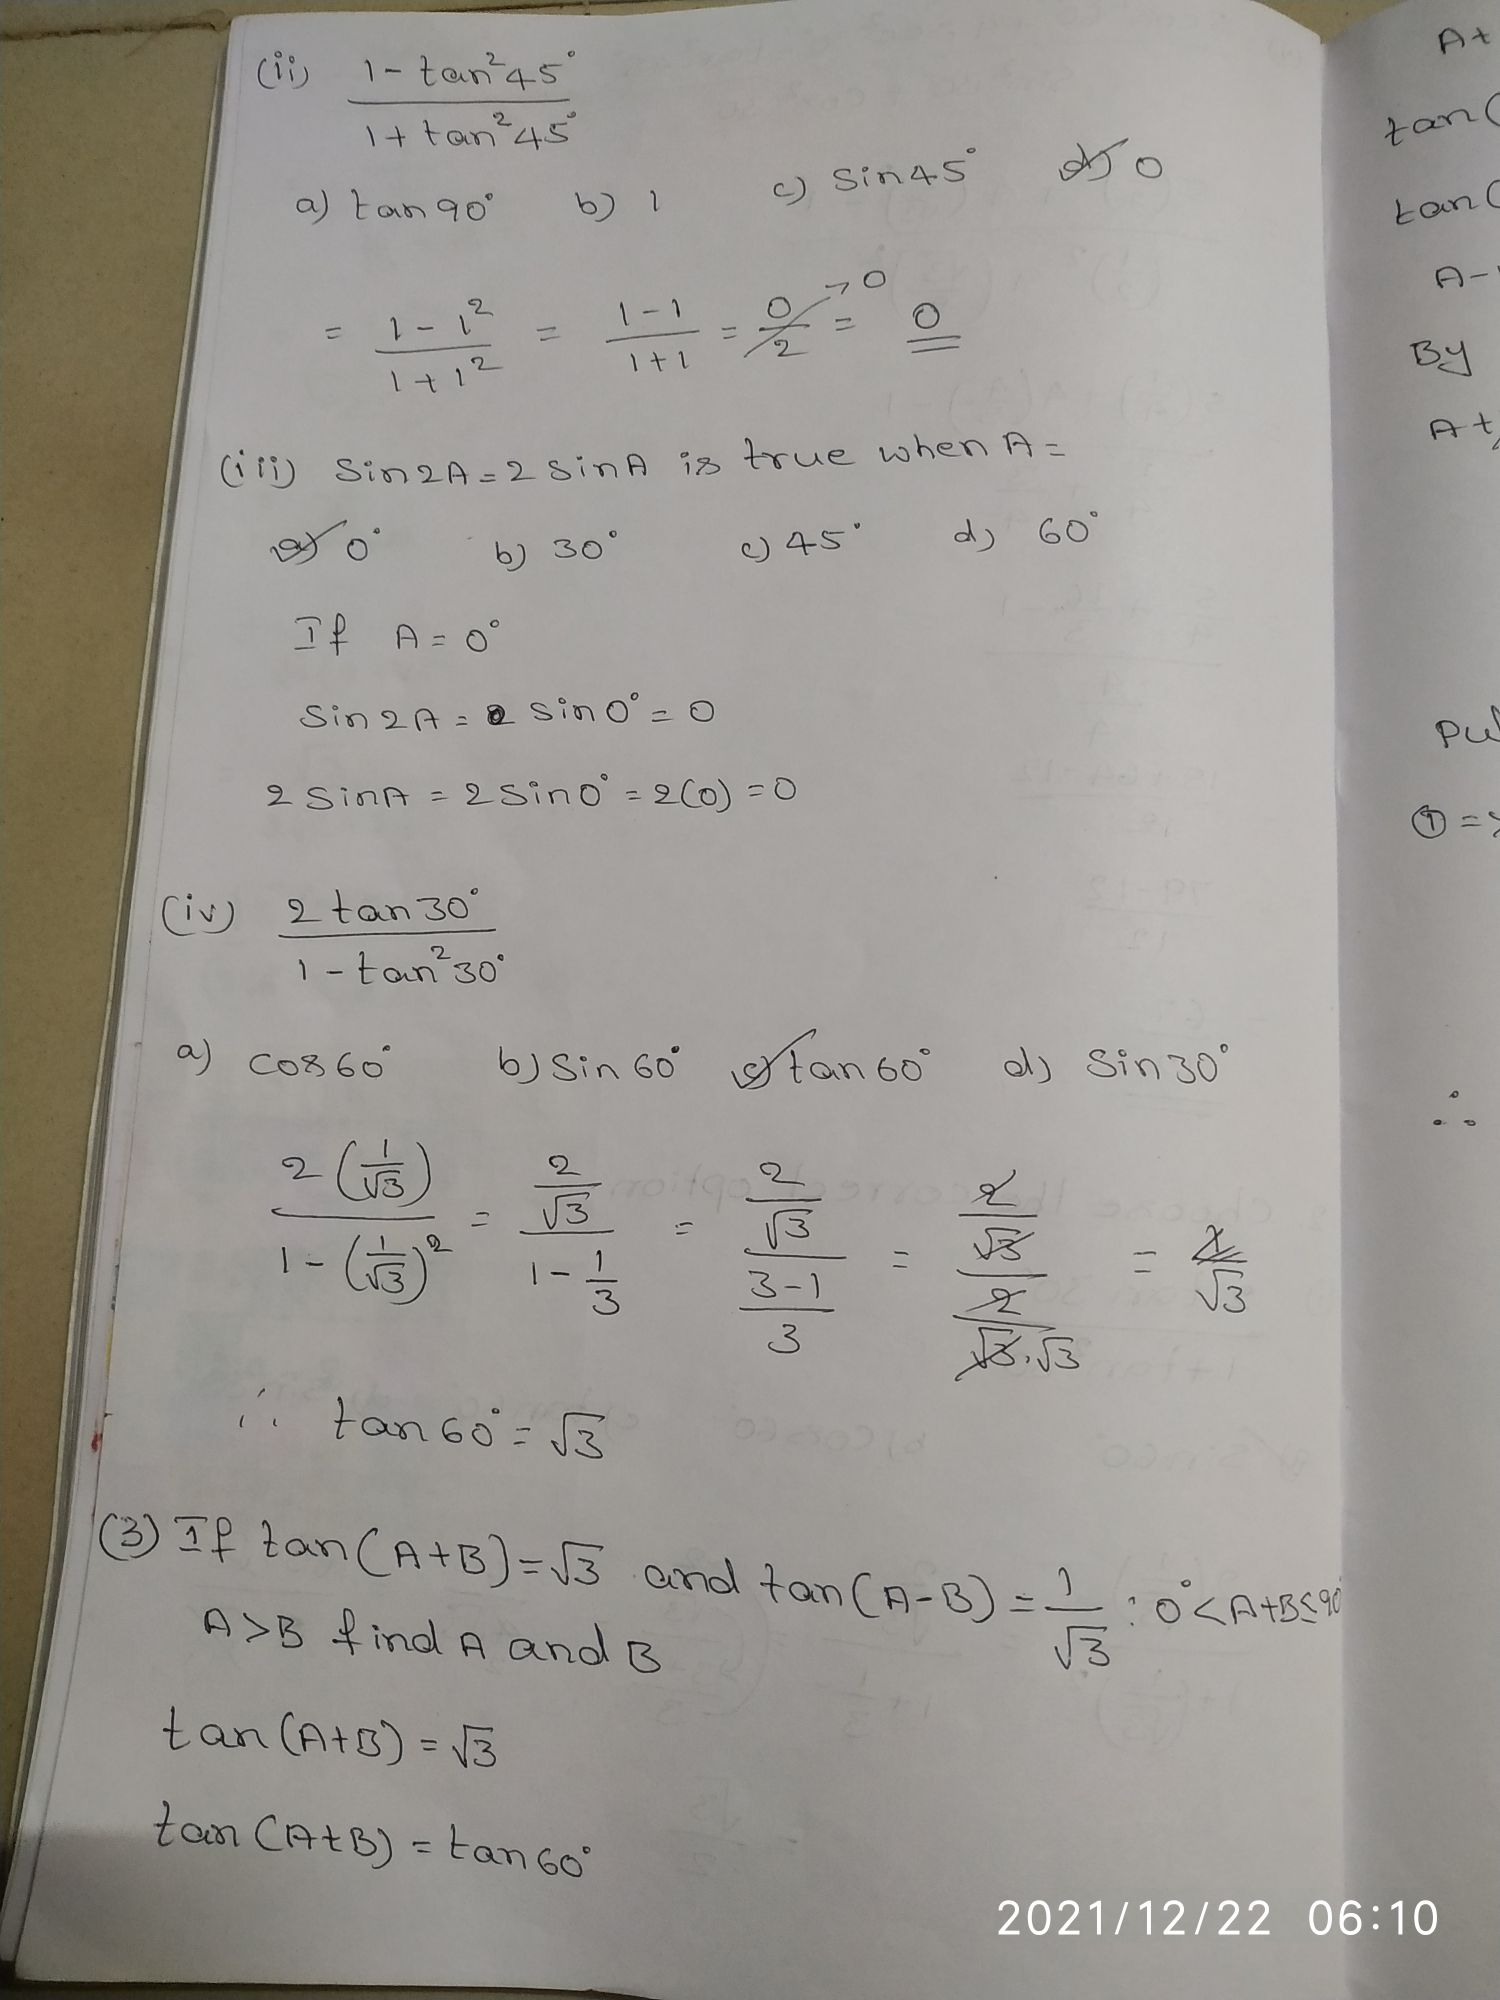 (ii) 1 - tan²45° / 1 + tan²45°
a) tan 90° b) 1 c) Sin 45° d) 0
= 1 - 1² / 1 + 1² = 1 - 1 / 1 + 1 = 0/2 → 0 = 0
(iii) Sin 2A = 2 Sin A is true when A =
a) 0° b) 30° c) 45° d) 60°
If A = 0°
Sin 2A = Sin 0° = 0
2 Sin A = 2 Sin 0° = 2(0) = 0
(iv) 2 tan 30° / 1 - tan²30°
a) cos 60° b) Sin 60° c) tan 60° d) Sin 30°
2(1/√3) / 1 - (1/√3)² = 2/√3 / 1 - 1/3 = 2/√3 / 3-1/3 = 2/√3 / 2/√3.√3 = √3
∴ tan 60° = √3
(3) If tan(A+B) = √3 and tan(A-B) = 1/√3 : 0° < A+B ≤ 90°
A > B find A and B
tan(A+B) = √3
tan(A+B) = tan 60°
A+
tan(
tan(
A-
By
A+
① =>
∴
2021/12/22 06:10